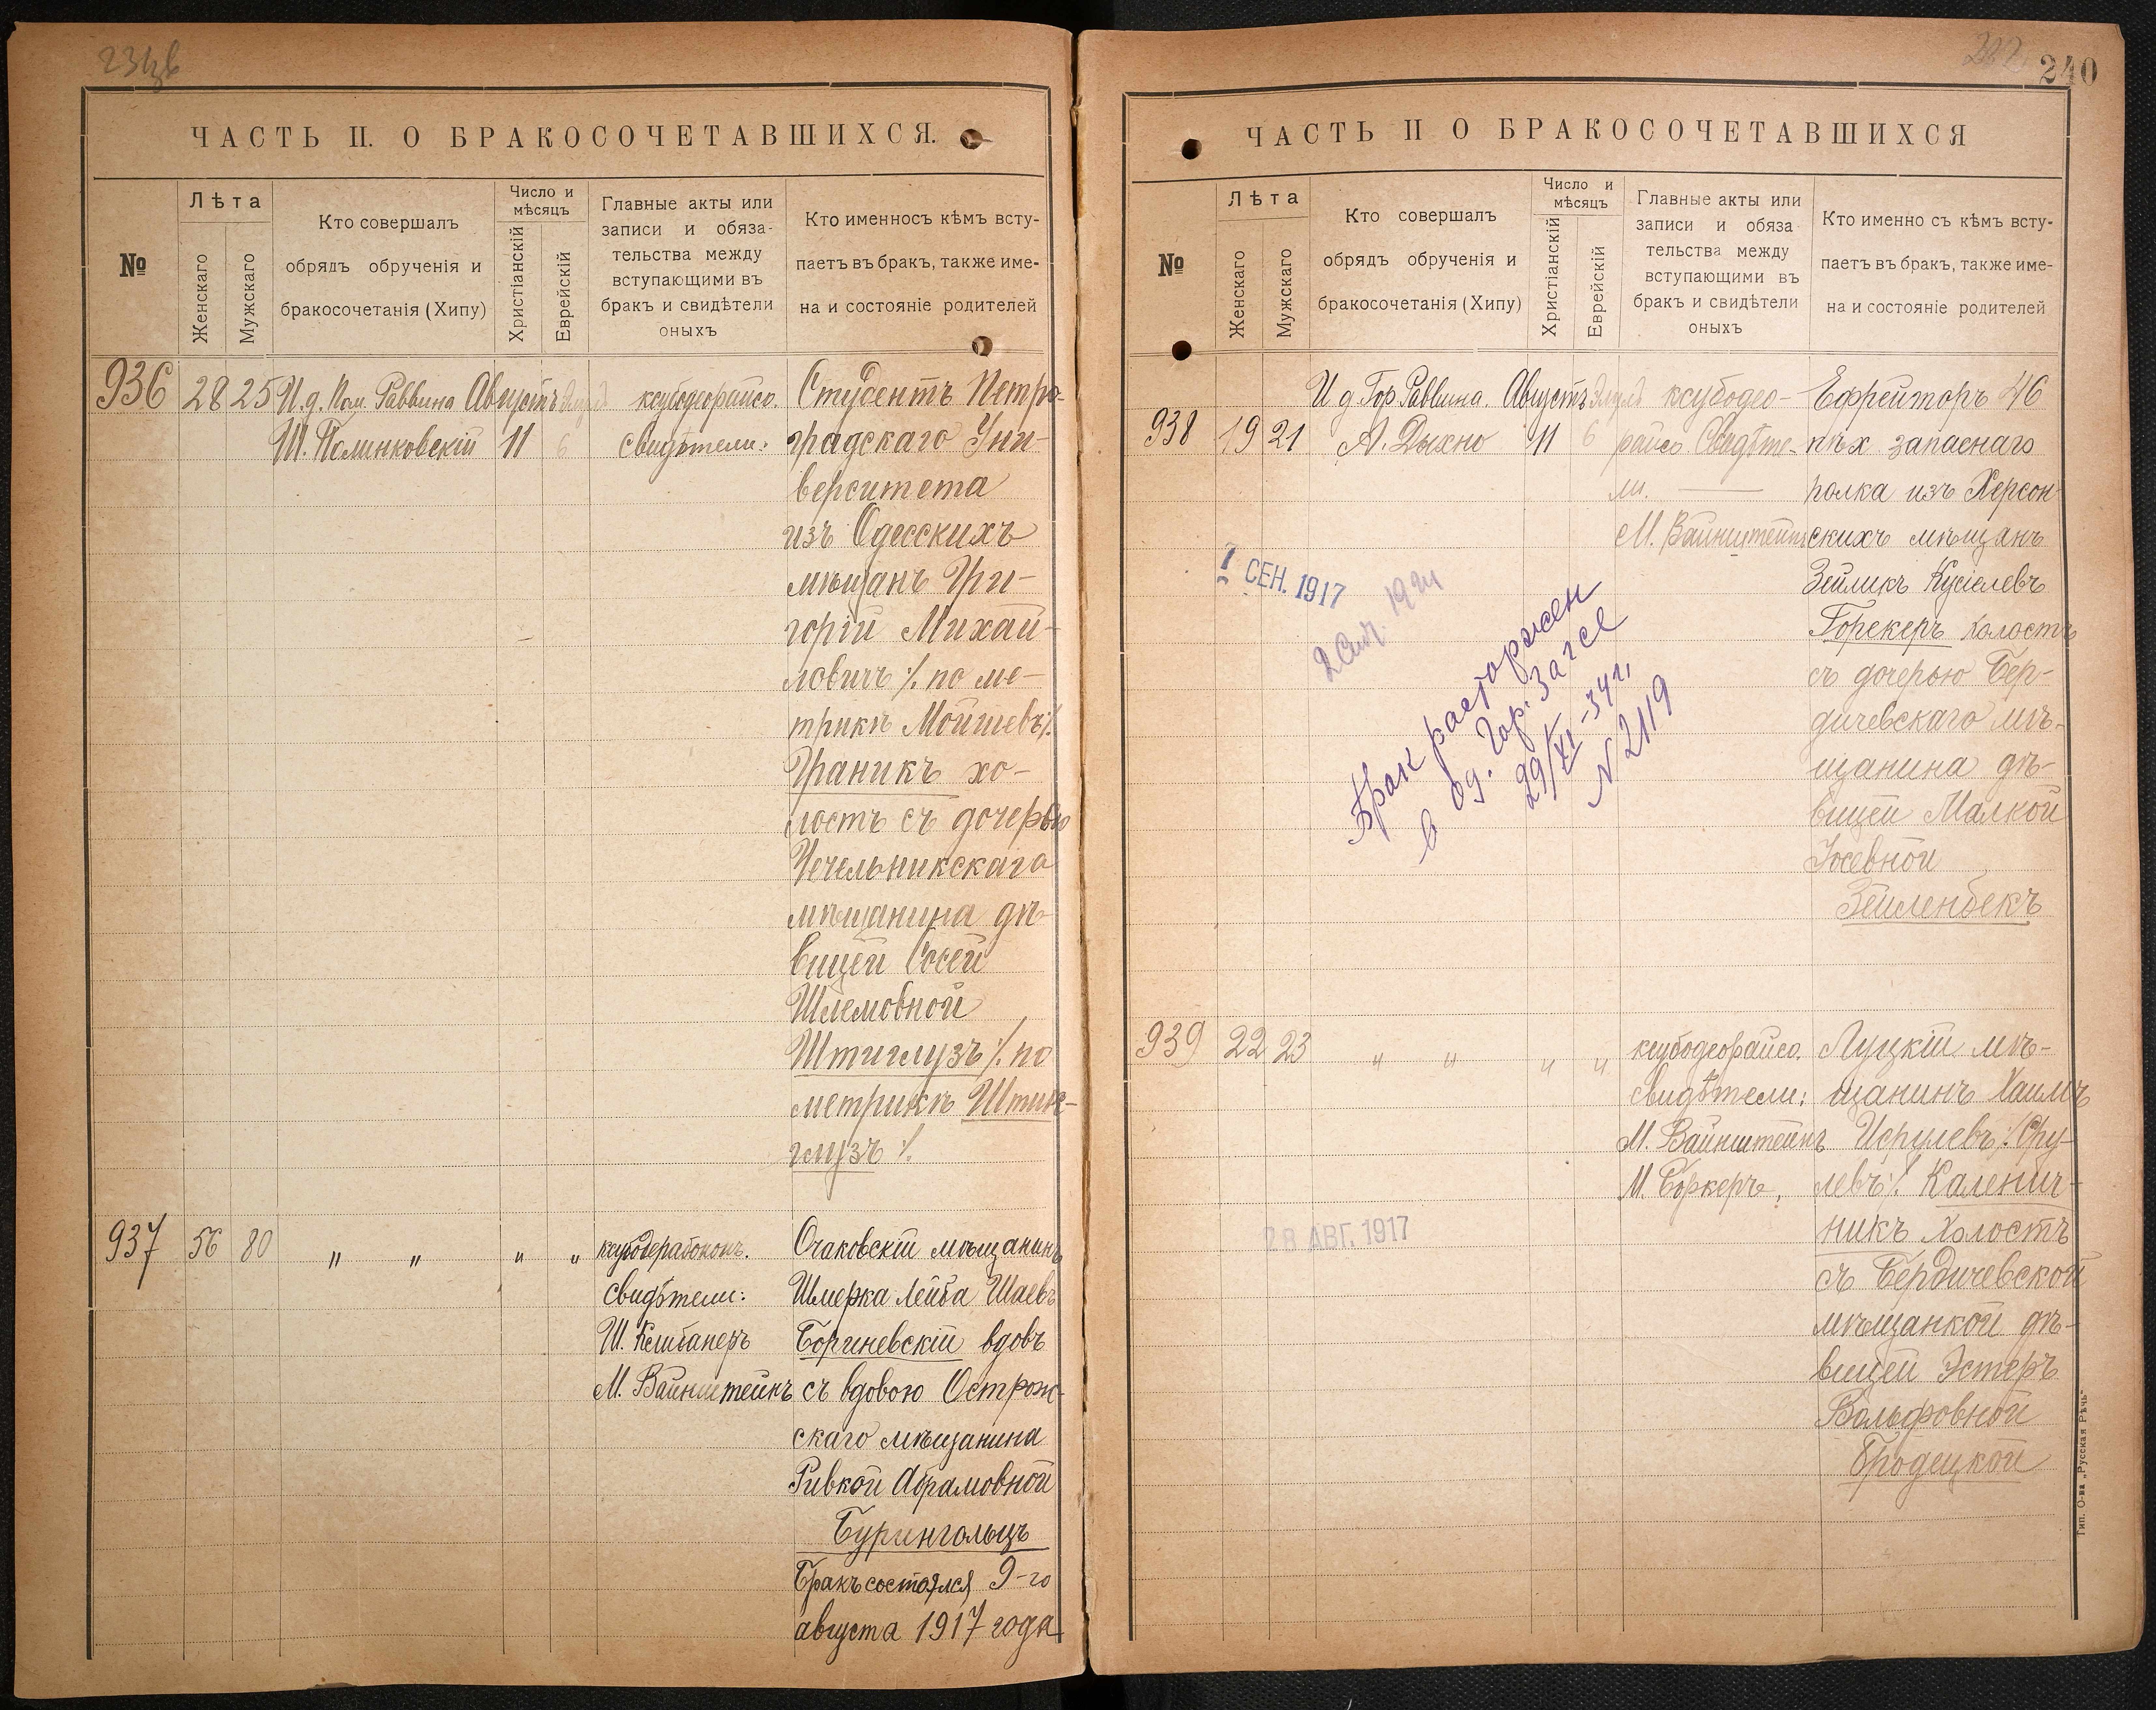 ЧАСТЬ II. О БРАКОСОЧЕТАВШИХСЯ.
№
Лѣта
Женскаго
Мужскаго
Кто совершалъ
обрядъ обрученія и
бракосочетанія (Хипу)
Число и
мѣсяцъ
Христіанскій
Еврейскій
Главные акты или
записи и обяза-
тельства между
вступающими въ
бракъ и свидѣтели
оныхъ
Кто именносъ кѣмъ всту-
паетъ въ бракъ, также име-
на и состояніе родителей
936 28 25
И.д. Пом. Раввина
Ш. Полинковскій
Августъ
11 6
ксубодеорайсо.
Свидѣтели:
Студентъ Петро-
градскаго Уни-
верситета
изъ Одесскихъ
мѣщанъ Гри-
горій Михай-
ловичъ ./. по ме-
трикѣ Мойшевъ ./.
Граникъ хо-
лостъ съ дочерью
Чечельникскаго
мѣщанина дѣ-
вицей Сосей
Шлемовной
Штиглузъ ./. по
метрикѣ
глузъ ./.
937 56 80 " " " "
свидѣтели:
М. Вайнштейнъ
Очаковскій мѣщанинъ
Шмерка Лейба Шаевъ
Боргиневскій вдовъ
съ вдовою Острож-
скаго мѣщанина
Ривкой Абрамовной
Бурингольцъ
Бракъ состоялся 9-го
августа 1917 года
240
ЧАСТЬ II О БРАКОСОЧЕТАВШИХСЯ
№
Лѣта
Женскаго
Мужскаго
Кто совершалъ
обрядъ обрученія и
бракосочетанія (Хипу)
Число и
мѣсяцъ
Христіанскій
Еврейскій
Главные акты или
записи и обяза
тельства между
вступающими въ
бракъ и свидѣтели
оныхъ
Кто именно съ кѣмъ всту-
паетъ въ бракъ, также име-
на и состояніе родителей
938 19 21
И д Гор Раввина.
А. Дыхно
Августъ Элулъ
11 6
ксубодео-
райсо Свидѣте-
ли. —
М. Вайнштейнъ
Ефрейторъ 46
пѣх запаснаго
полка изъ Херсон-
скихъ мѣщанъ
Зейликъ Кусіелевъ
Горекеръ холостъ
съ дочерью Бер-
дичевскаго мѣ-
щанина дѣ-
вицей Малкой
Іосевной
Зейленбекъ
1 СЕН. 1917
Брак расторжен
в Од. Гор. Загсе
29/XI-34 г,
N 2119
939 22 23 " " " "
ксубодеорайсо.
свидѣтели:
М. Вайнштейнъ
М. Боркеръ.
Луцкій мѣ-
щанинъ Хаимъ
Исрулевъ ./. Сру-
левъ ./. Каленич-
никъ холостъ
съ Бердичевской
мѣщанкой дѣ-
вицей Эстеръ
Вольфовной
Бродецкой
28 АВГ. 1917
Тип. О-ва „Русская Рѣчь"